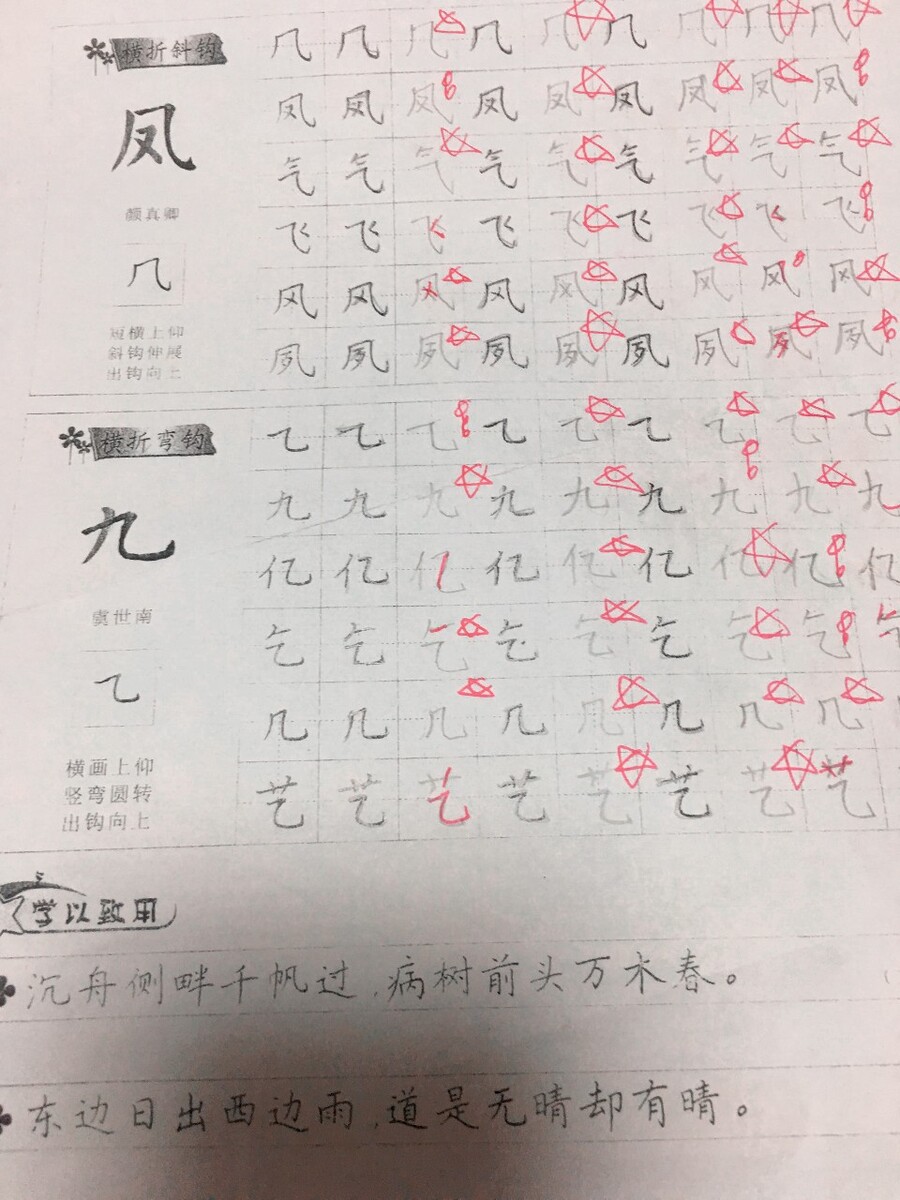 横折斜钩
凤
颜真卿
短横上仰
斜钩伸展
出钩向上
凤凤凤凤凤凤凤凤凤
气气气气气气气气气
飞飞飞飞飞飞飞飞飞
风风风风风风风风风
夙夙夙夙夙夙夙夙夙
横折弯钩
九
虞世南
横画上仰
竖弯圆转
出钩向上
九九九九九九九九九
亿亿亿亿亿亿亿亿亿
乞乞乞乞乞乞乞乞
几几几几几几几几
艺艺艺艺艺艺艺艺
学以致用
沉舟侧畔千帆过,病树前头万木春。
东边日出西边雨,道是无晴却有晴。